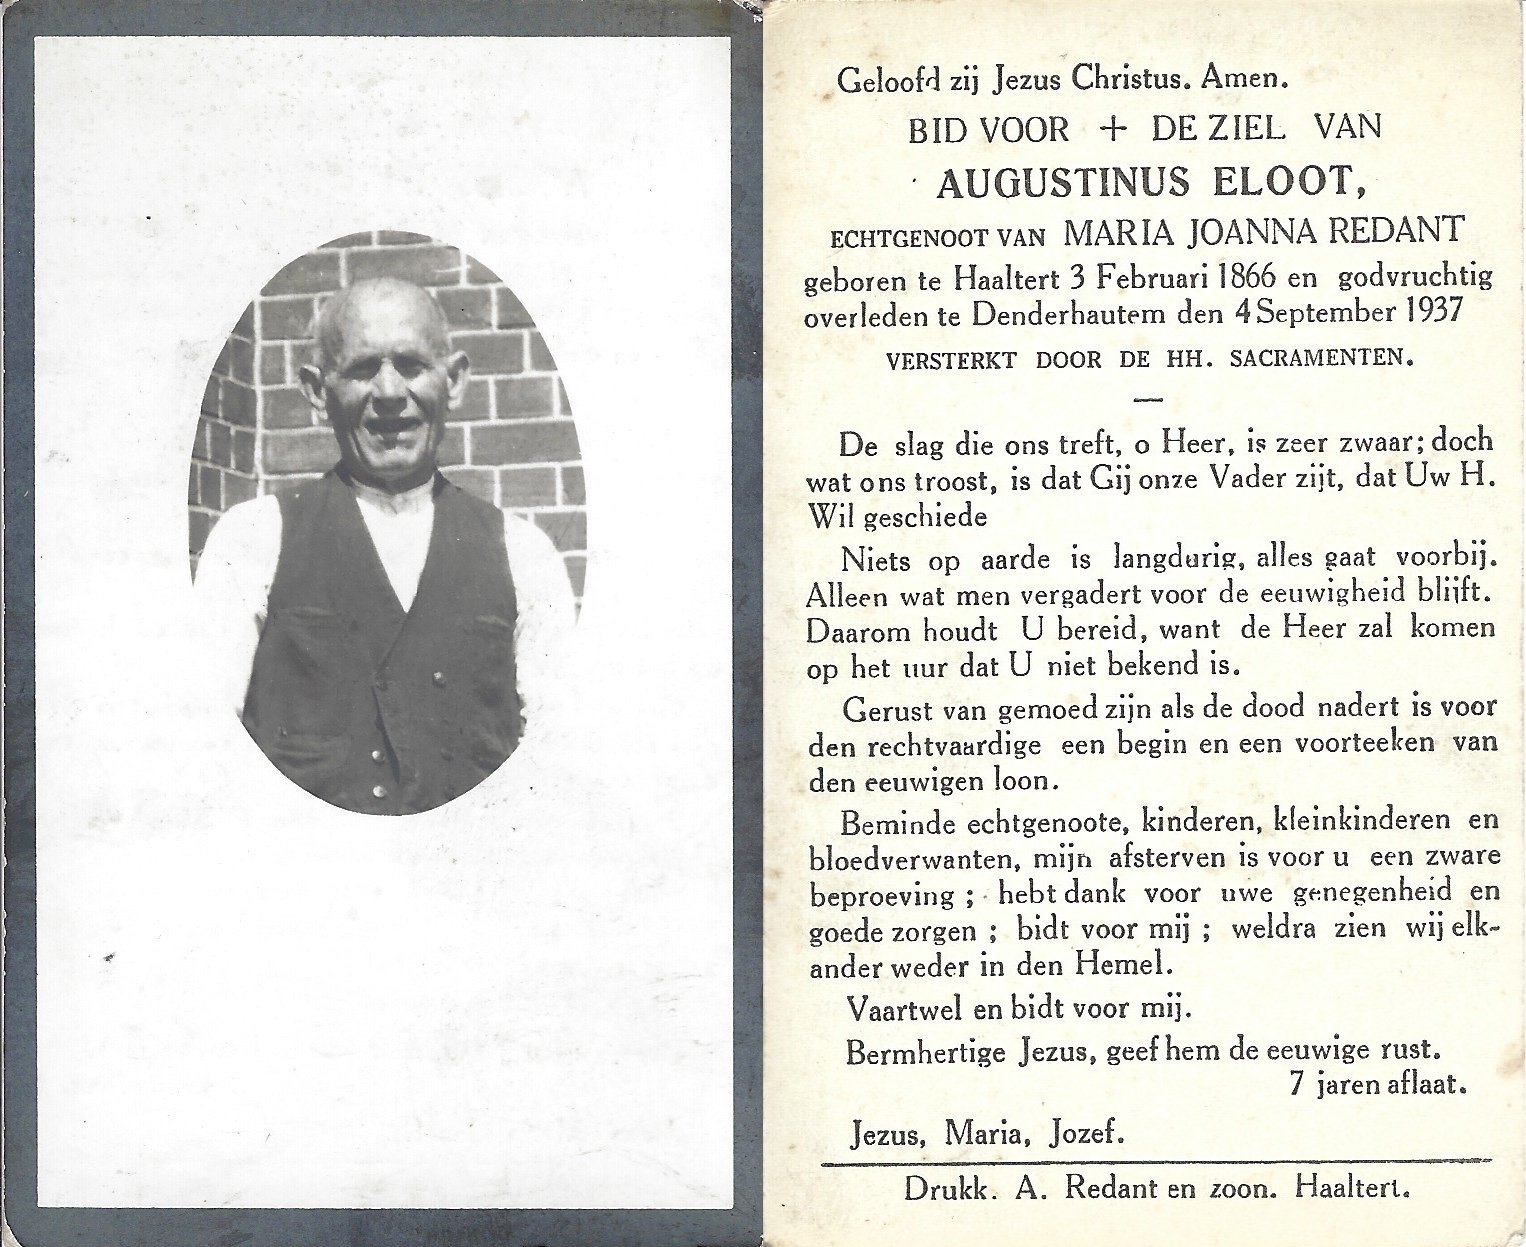 Geloofd zij Jezus Christus. Amen.
BID VOOR + DE ZIEL VAN
AUGUSTINUS ELOOT,
ECHTGENOOT VAN MARIA JOANNA REDANT
geboren te Haaltert 3 Februari 1866 en godvruchtig
overleden te Denderhautem den 4 September 1937
VERSTERKT DOOR DE HH. SACRAMENTEN.
—
De slag die ons treft, o Heer, is zeer zwaar; doch
wat ons troost, is dat Gij onze Vader zijt, dat Uw H.
Wil geschiede
Niets op aarde is langdurig, alles gaat voorbij.
Alleen wat men vergadert voor de eeuwigheid blijft.
Daarom houdt U bereid, want de Heer zal komen
op het uur dat U niet bekend is.
Gerust van gemoed zijn als de dood nadert is voor
den rechtvaardige een begin en een voorteeken van
den eeuwigen loon.
Beminde echtgenoote, kinderen, kleinkinderen en
bloedverwanten, mijn afsterven is voor u een zware
beproeving ; hebt dank voor uwe genegenheid en
goede zorgen ; bidt voor mij ; weldra zien wij elk-
ander weder in den Hemel.
Vaartwel en bidt voor mij.
Bermhertige Jezus, geef hem de eeuwige rust.
7 jaren aflaat.
Jezus, Maria, Jozef.
Drukk. A. Redant en zoon. Haaltert.